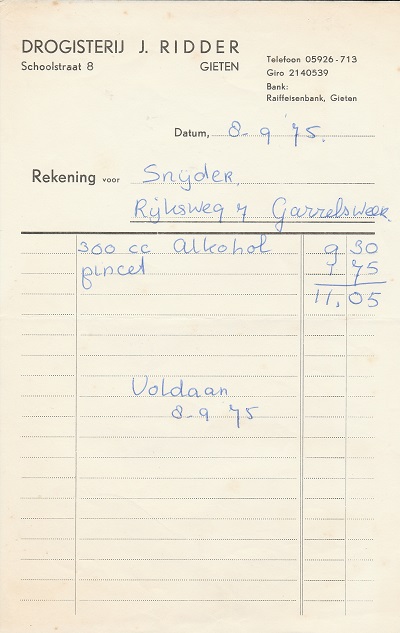 DROGISTERIJ J. RIDDER
Schoolstraat 8 GIETEN
Telefoon 05926-713
Giro 2140539
Bank:
Raiffeisenbank, Gieten
Datum, 8-9 75.
Rekening voor Snijder.
Rijksweg 7 Garrelsweer
300 cc Alkohol 9 30
pincet 1 75
11,05
Voldaan
8-9 75